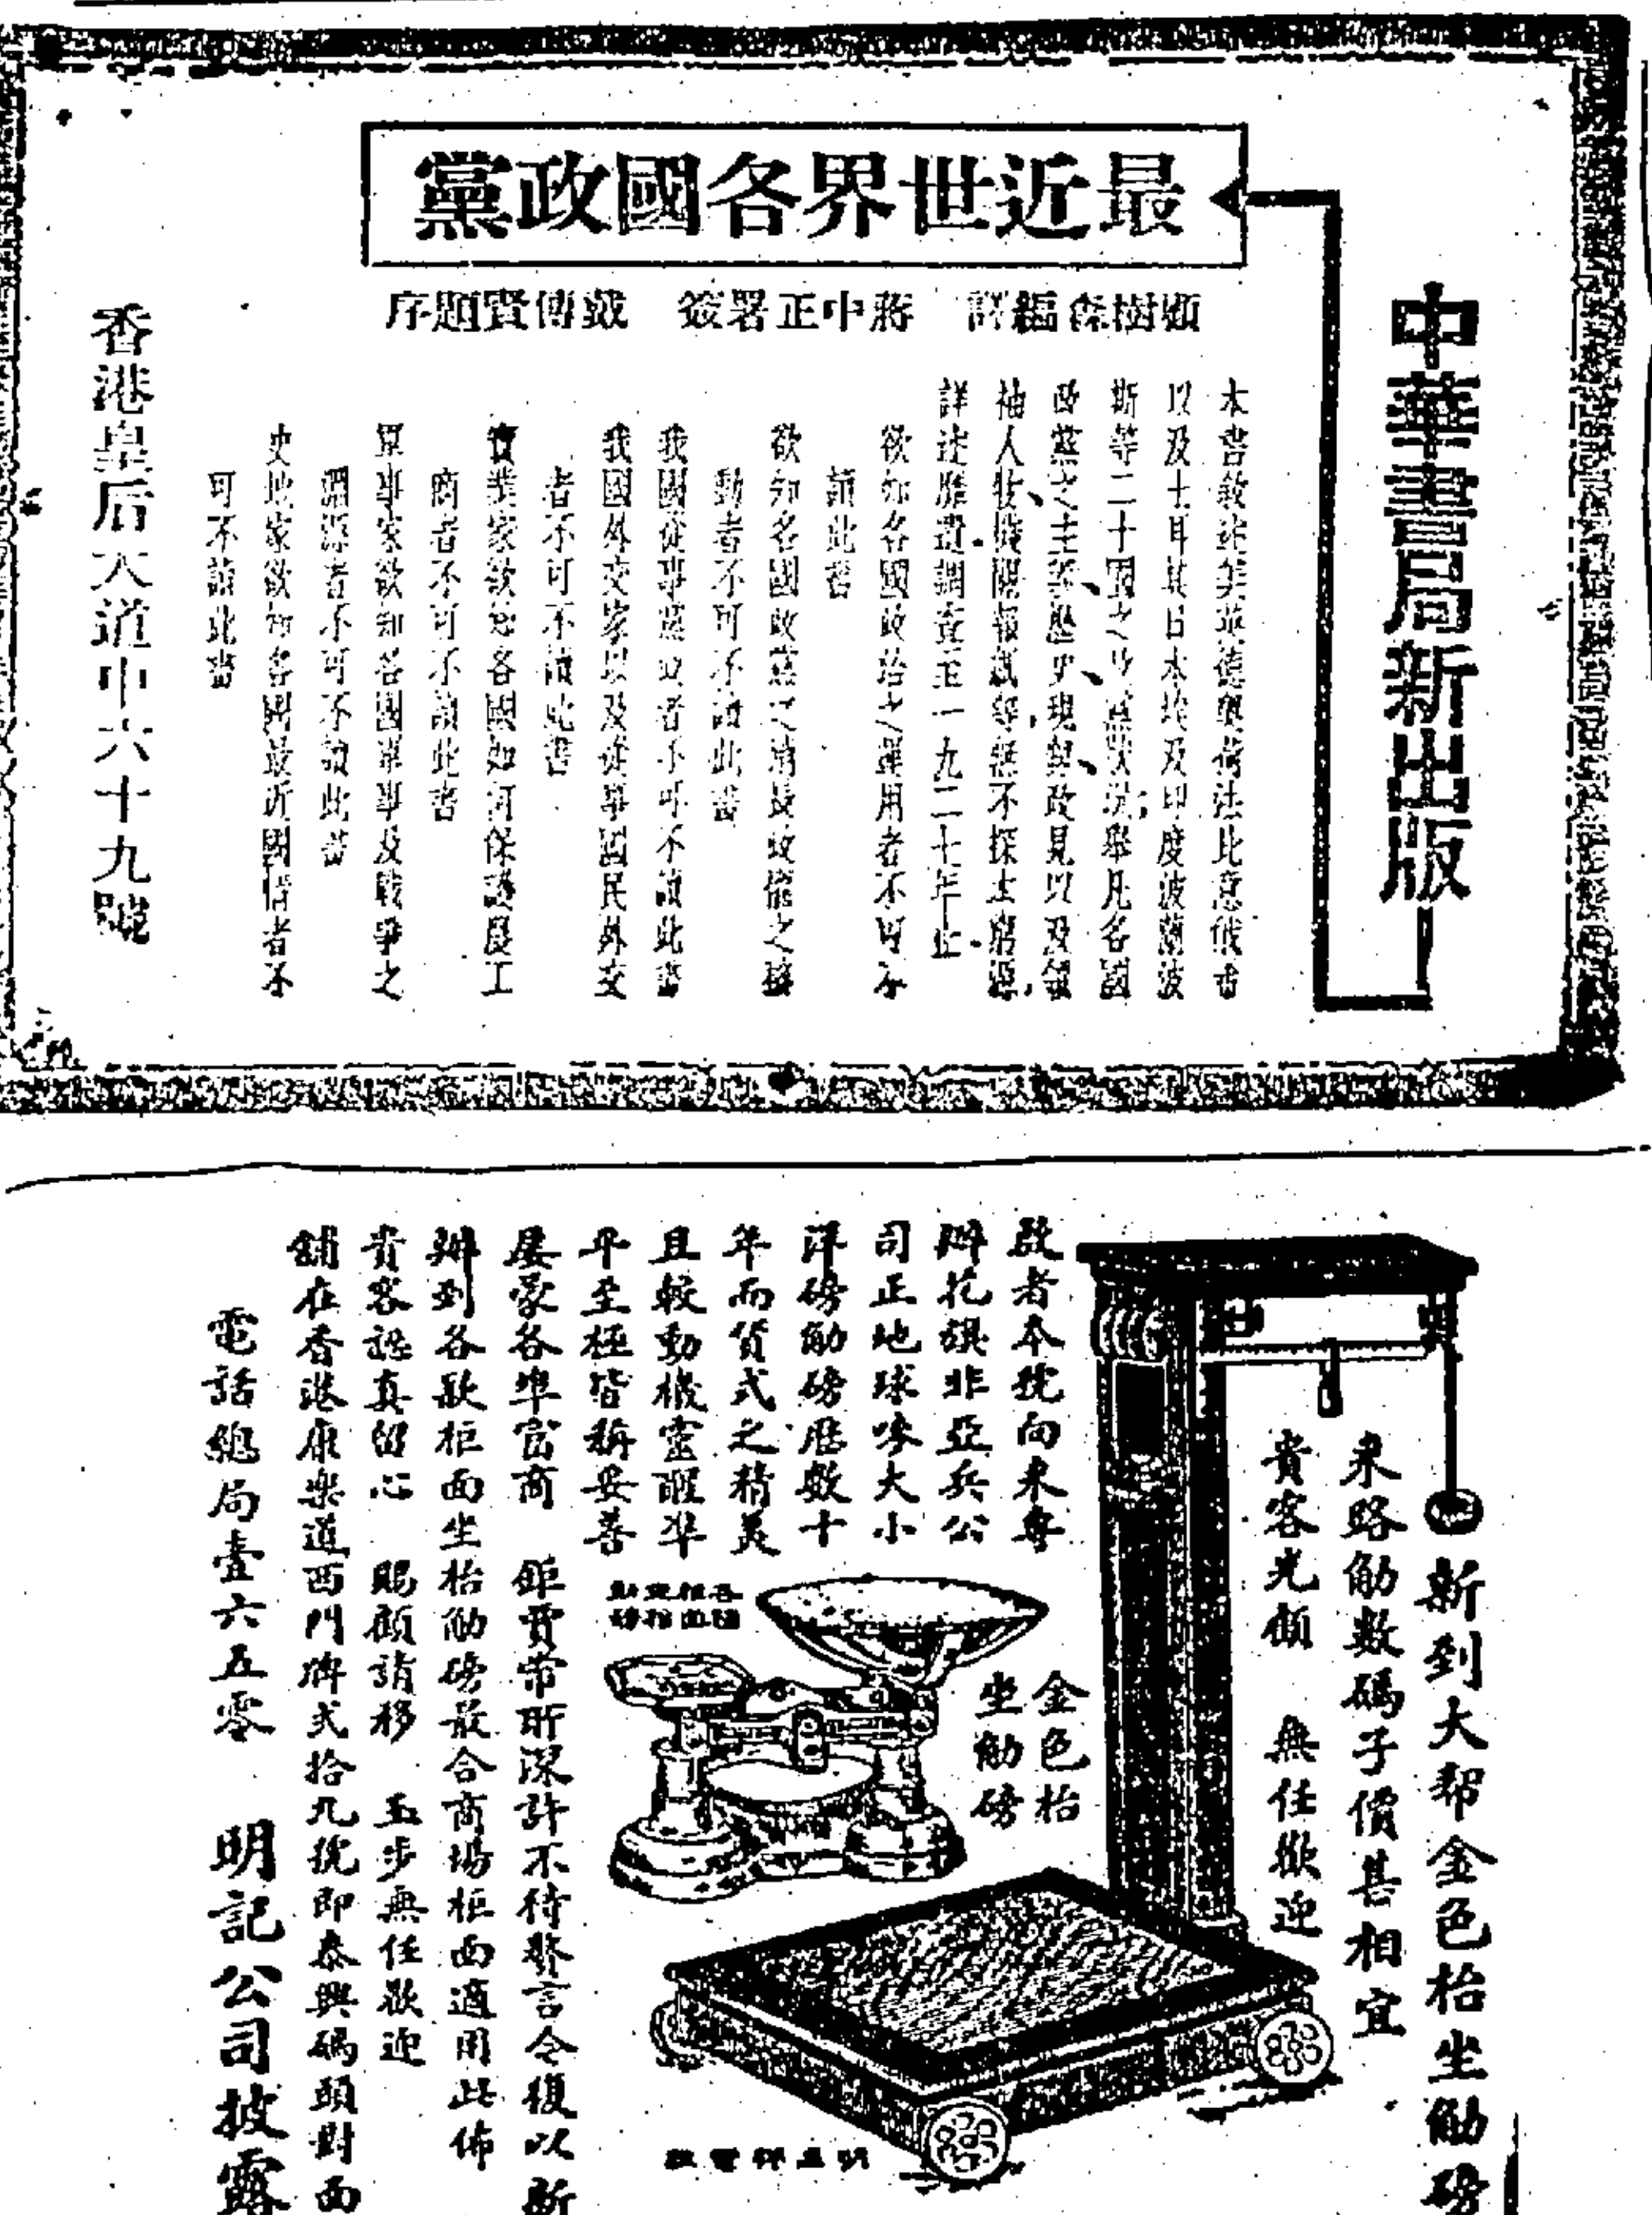 中華書局新出版
最近世界各國政黨
顧樹森編譯　蔣中正署簽　戴傳賢題序
本書敘述美英德奧荷法比意俄
以及土耳其日本埃及印度波蘭波
斯等二十國之政黨狀況舉凡各國
政黨之主張歷史現與政見以及領
袖人物機關報紙等無不探本窮源
詳述靡遺調查至一九二七年止
欲知各國政治之運用者不可不
讀此書
欲知各國政黨之消長政權之移
動者不可不讀此書
我國從事黨政者不可不讀此書
我國外交家以及從事國民外交
者不可不讀此書
實業家欲知各國如何保護農工
商者不可不讀此書
軍事家欲知各國軍事及戰爭之
淵源者不可不讀此書
史地家欲知各國最近國情者不
可不讀此書
香港皇后大道中六十九號
新到大帮金色枱坐觔磅
來路觔數碼子價甚相宜
貴客光顧　無任歡迎
啟者本號向來專
辦花旗非亞兵公
司正地球嘜大小
洋磅觔磅歷數十
年而貨式之精美
且較動機靈醒準
平至極皆稱妥善
金色枱
坐觔磅
屢蒙各埠富商　鉅賈常所深許不待贅言今復以新
辦到各款柜面坐枱觔磅最合商場柜面適用此佈
貴客認真留心　賜顧請移　玉步無任歡迎
舖在香港康樂道西門牌弍拾九號即泰興碼頭對面
電話總局壹六五零　明記公司披露